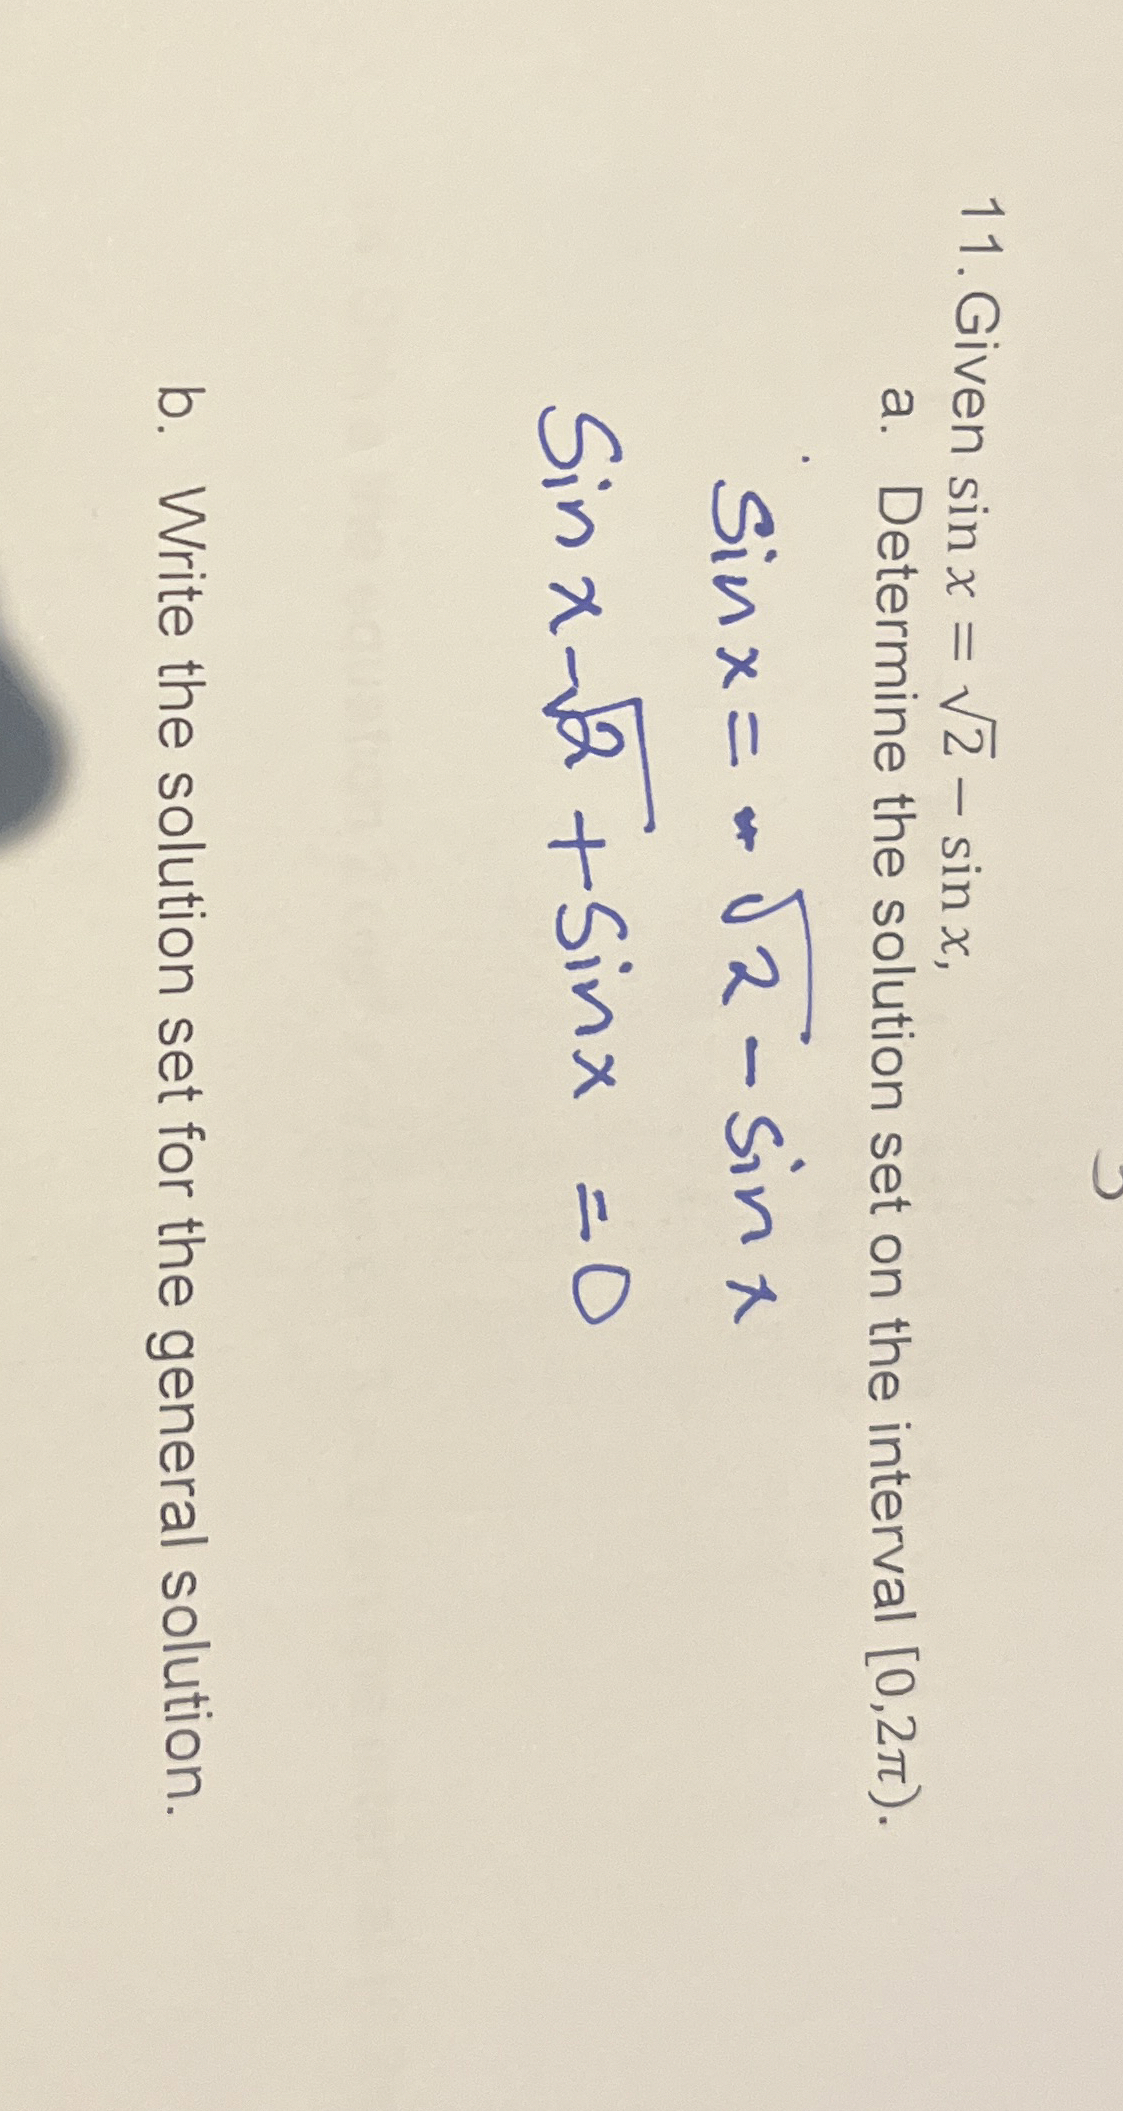 11. Given sin x = √2 − sin x,
a. Determine the solution set on the interval [0,2π).
Sin x = √2 - Sin x
Sin x - √2 + Sin x = 0
b. Write the solution set for the general solution.